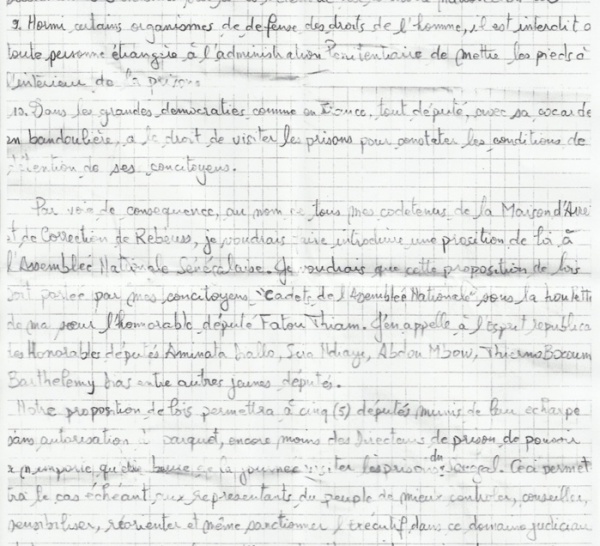 9. Hormi certains organismes de defense des droits de l'homme, il est interdit à
toute personne étrangère à l'administration Penitentiaire de mettre les pieds à
l'intérieur de la prison
10. Dans les grandes democraties comme en France, tout député, avec sa cocarde
en bandoulière, a le droit de visiter les prisons pour constater les conditions de
détention de ses concitoyens.
Par voie de consequence, au nom de tous mes codetenus de la Maison d'Arrêt
et de Correction de Rebeuss, je voudrais faire introduire une proposition de loi à
l'Assemblée Nationale Sénégalaise. Je voudrais que cette proposition de lois
soit portée par mes concitoyens "Cadets de l'Assemblée Nationale" sous la houlette
de ma soeur l'honorable député Fatou Thiam. J'en appelle à l'esprit républicain
des Honorables députés Aminata Diallo, Ndiaye, Abdou Mbow, Thierno Bocoum
Barthelemy Dias entre autres jeunes députés.
Notre proposition de lois permettra à cinq (5) députés munis de leur echarpe
sans autorisation parquet, encore moins des Directeurs de prison de pouvoir
à n'importe quelle heure de la journée visiter les prisons du Sénégal. Ceci permet
tra le cas échéant aux représentants du peuple de mieux controler, conseiller,
sensibiliser, réorienter et même sanctionner l'exécutif dans ce domaine judiciaire